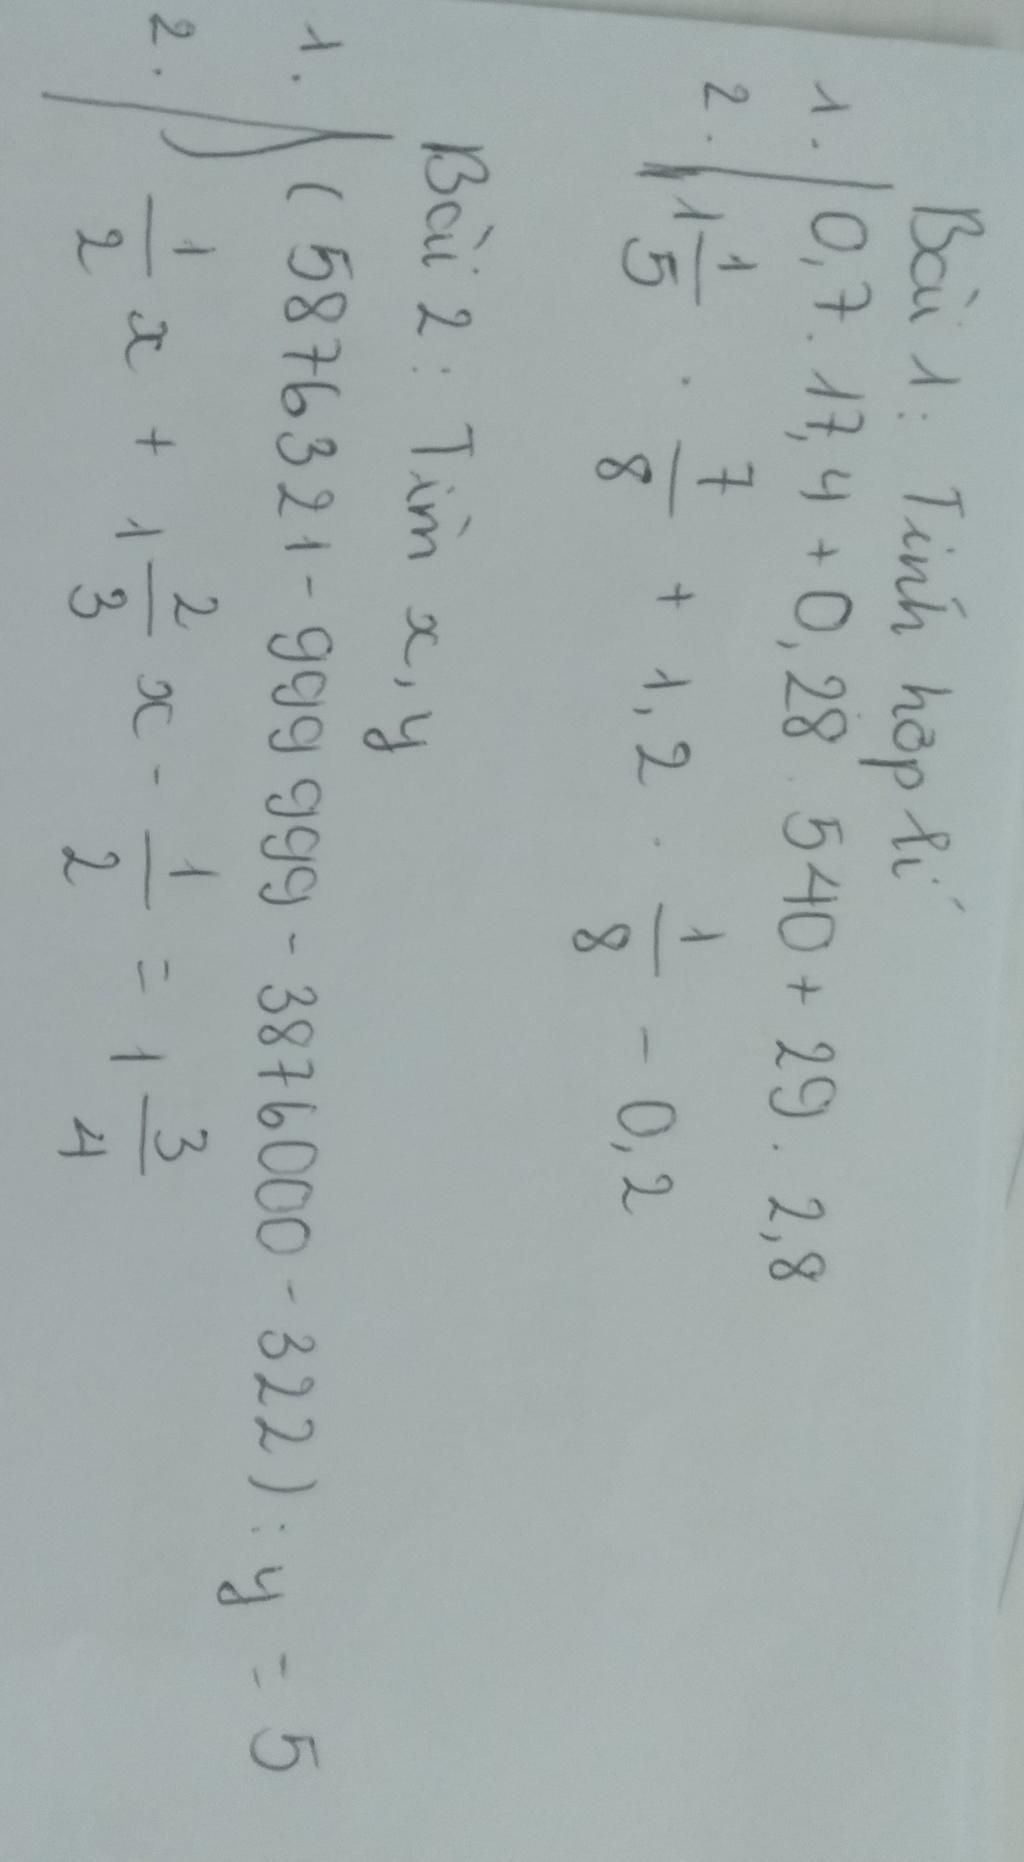 Bài 1: Tính hợp lí
1. 0,7. 17,4 + 0,28 . 540 + 29. 2,8
2. 1 1/5 . 7/8 + 1,2 . 1/8 - 0,2
Bài 2: Tìm x, y
1. (5876321 - 999999 - 3876000 - 322) : y = 5
2. 1/2 x + 1 2/3 x - 1/2 = 1 3/4